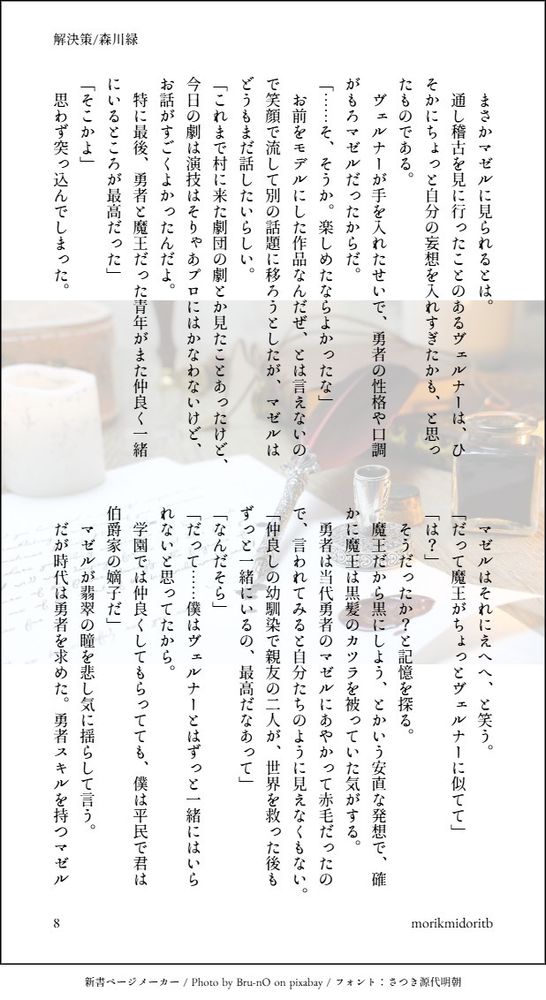 解決策/森川緑
まさかマゼルに見られるとは。
通し稽古を見に行ったことのあるヴェルナーは、ひ
そかにちょっと自分の妄想を入れすぎたかも、と思っ
たものである。
ヴェルナーが手を入れたせいで、勇者の性格や口調
がもろマゼルだったからだ。
「……そ、そうか。楽しめたならよかったな」
お前をモデルにした作品なんだぜ、とは言えないの
で笑顔で流して別の話題に移ろうとしたが、マゼルは
どうもまだ話したいらしい。
「これまで村に来た劇団の劇とか見たことあったけど、
今日の劇は演技はそりゃあプロにはかなわないけど、
お話がすごくよかったんだよ。
特に最後、勇者と魔王だった青年がまた仲良く一緒
にいるところが最高だった」
「そこかよ」
思わず突っ込んでしまった。
マゼルはそれにえへへ、と笑う。
「だって魔王がちょっとヴェルナーに似てて」
「は？」
そうだったか？と記憶を探る。
魔王だから黒にしよう、とかいう安直な発想で、確
かに魔王は黒髪のカツラを被っていた気がする。
勇者は当代勇者のマゼルにあやかって赤毛だったの
で、言われてみると自分たちのように見えなくもない。
「仲良しの幼馴染で親友の二人が、世界を救った後も
ずっと一緒にいるの、最高だなあって」
「なんだそら」
「だって……僕はヴェルナーとはずっと一緒にはいら
れないと思ってたから。
学園では仲良くしてもらってても、僕は平民で君は
伯爵家の嫡子だ」
マゼルが翡翠の瞳を悲し気に揺らして言う。
だが時代は勇者を求めた。勇者スキルを持つマゼル
8
morikmidoritb
新書ページメーカー / Photo by Bru-nO on pixabay / フォント：さつき源代明朝